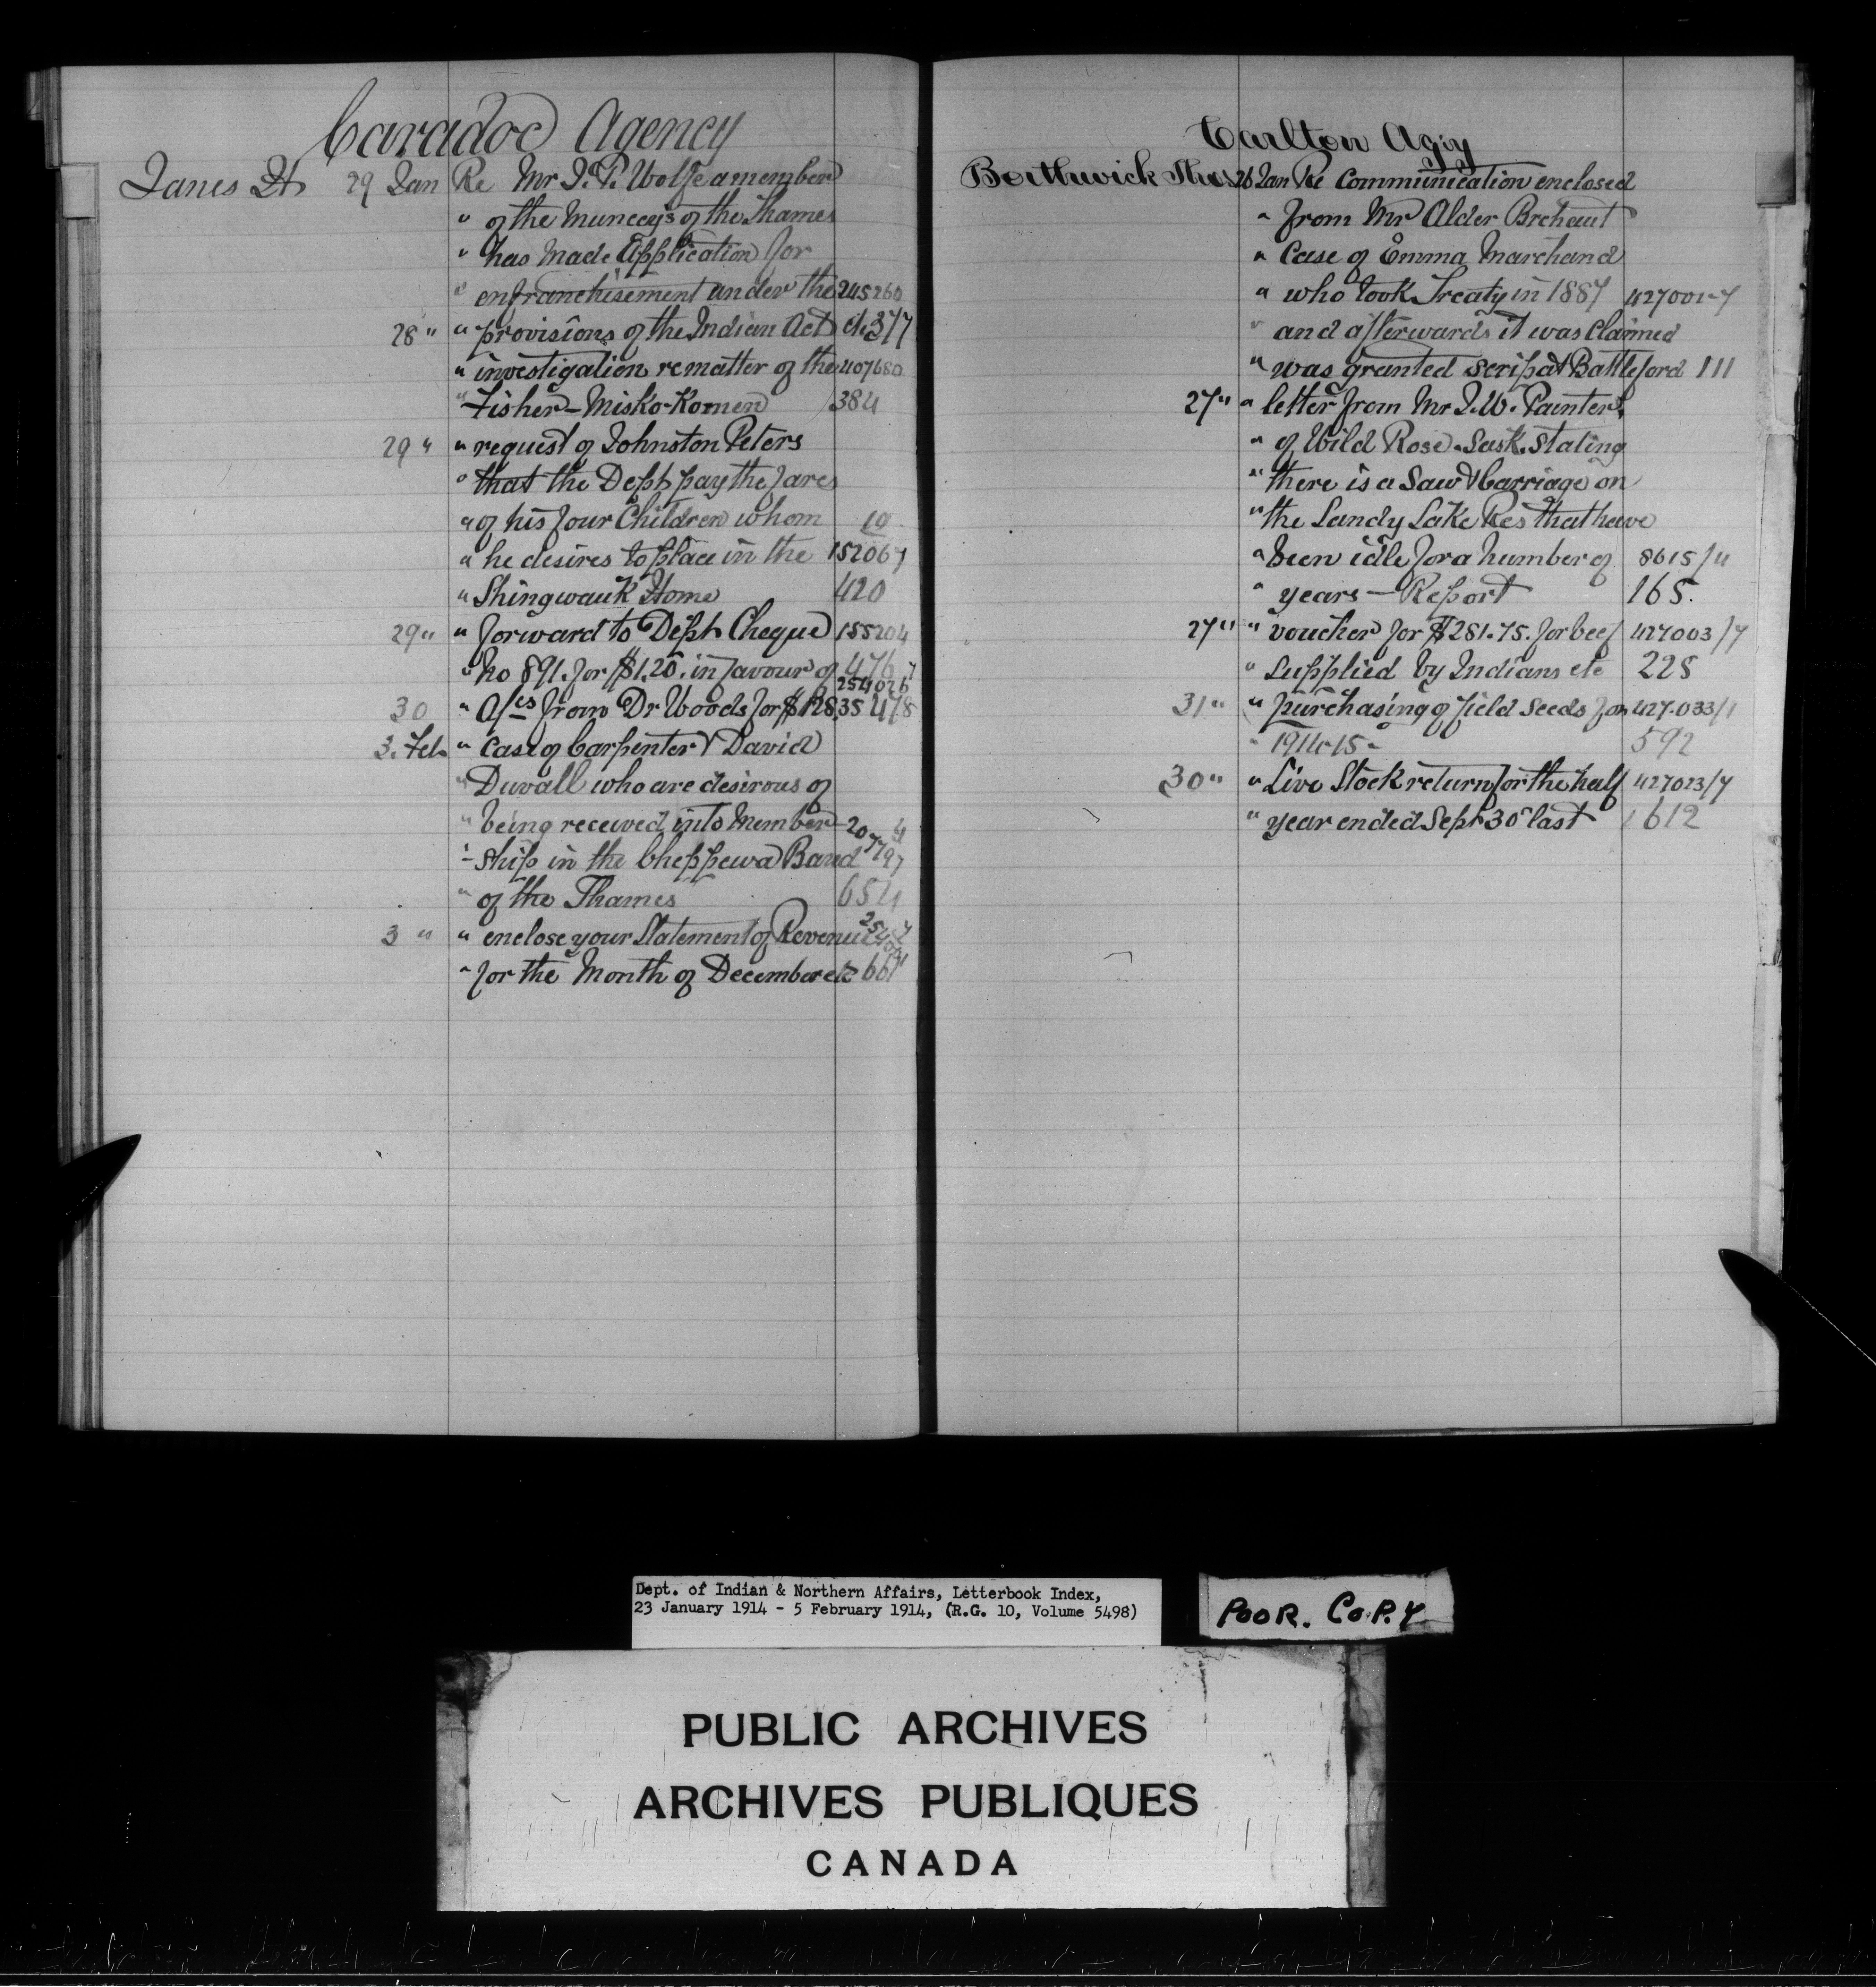 Caradoc Agency
Janes H 29 Jan Re Mr J. P. Wolfe a member
" of the Munceys of the Thames
" has made application for
" enfranchisement under the 245260
28 " " provisions of the Indian Act etc 377
" investigation re matter of the 407680
" Fisher - Misko-Komen 384
29 " " request of Johnston Peters
" that the Dept pay the fares
" of his four Children whom 10
" he desires to place in the 152067
" Shingwauk Home 420
29 " " forward to Dept Cheque 155204
" no 891. for $1.20. in favour of 476
30 " A/cs from Dr Woods for $128.35 254026/7 478
3. Feb " Case of Carpenter & David
" Duvall who are desirous of
" being received into Member-
"-ship in the Cheppewa Band 207797
" of the Thames 654
3 " " enclose your Statement of Revenue
" for the Month of December etc 661
Carlton Agjy
Borthwick Thos 26 Jan Re Communication enclosed
" from Mr Alder Brehaut
" Case of Emma Marchand
" who took Treaty in 1887 427001-7
" and afterwards it was Claimed
" was granted scrip at Battleford 111
27 " " letter from Mr J. W. Painter,
" of Wild Rose. Sask. stating
" there is a Saw & Carriage on
" the Sandy Lake Res that have
" been idle for a number of 8615/4
" years - Report 168.
27 " " voucher for $281.75. for beef 427003/7
" supplied by Indians etc 228
31 " " purchasing of field seeds for 427.033/1
" 1914-15- 592
30 " " Live Stock return for the half 427023/7
" year ended Sept 30 last 612
Dept. of Indian & Northern Affairs, Letterbook Index,
23 January 1914 - 5 February 1914, (R.G. 10, Volume 5498)
POOR. COPY
PUBLIC ARCHIVES
ARCHIVES PUBLIQUES
CANADA